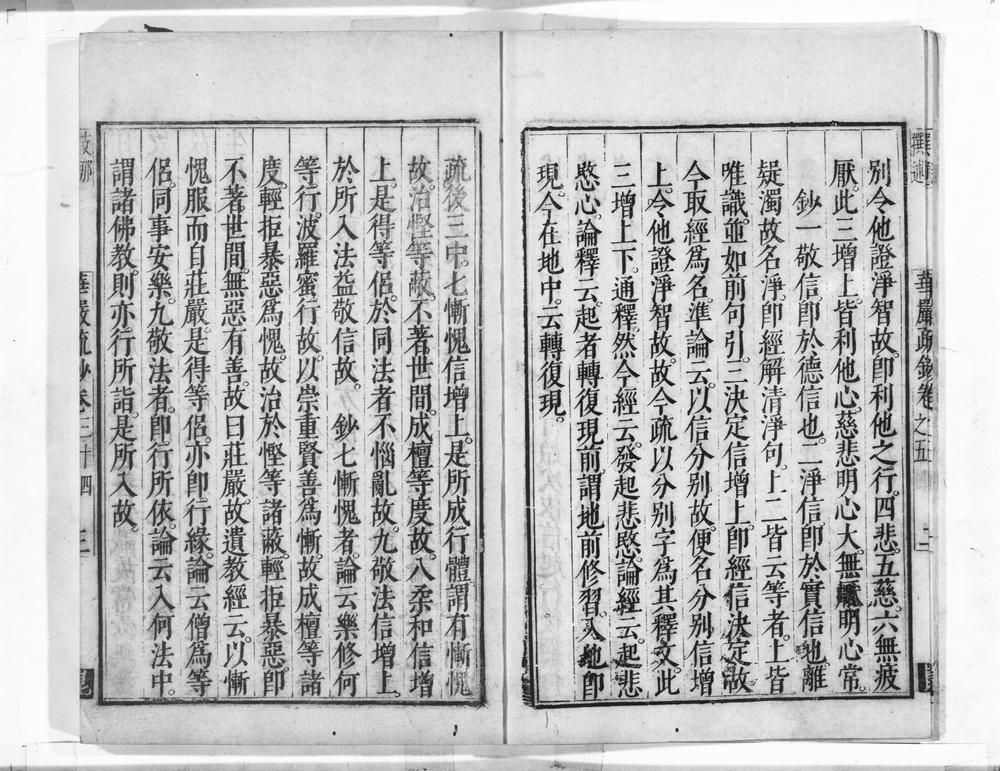 別今他證淨智故。卽利他之行。四悲。五慈。六無疲
厭。此三增上。皆利他心。慈悲明心大。無懨明心常。
鈔一敬信。卽於德信也。二淨信。卽於實信也。離
疑濁故名淨。卽經解清淨句。上二皆云等者。上皆
唯識。並如前句引。三決定信增上。卽經信決定故
今取經爲名。準論云。以信分別故。便名分別信增
上。今他證淨智故。故今疏以分別字爲其釋文。此
三增上下。通釋。然今經云。發起悲愍。論經云。起悲
愍心。論釋云。起者轉復現前。謂地前修習。入地卽
現。今在地中。云轉復現。
華嚴疏鈔卷 之五 二
疏後三中。七慚愧信增上。是所成行體。謂有慚愧
故。治慳等蔽。不著世間。成檀等度故。八柔和信增
上。是得等侶。於同法者不惱亂故。九敬法信增上。
於所入法益敬信故。 鈔七慚愧者。論云。樂修何
等行。波羅蜜行故。以崇重賢善爲慚。故成檀等諸
度。輕拒暴惡爲愧。故治於慳等諸蔽。輕拒暴惡。卽
不著世間。無惡有善。故曰莊嚴。故遺教經云。以慚
愧服而自莊嚴。是得等侶。亦卽行緣。論云。僧爲等
侶。同事安樂。九敬法者。卽行所依。論云。入何法中。
謂諸佛教。則亦行所詣。是所入故。
華嚴疏鈔卷三十四 三